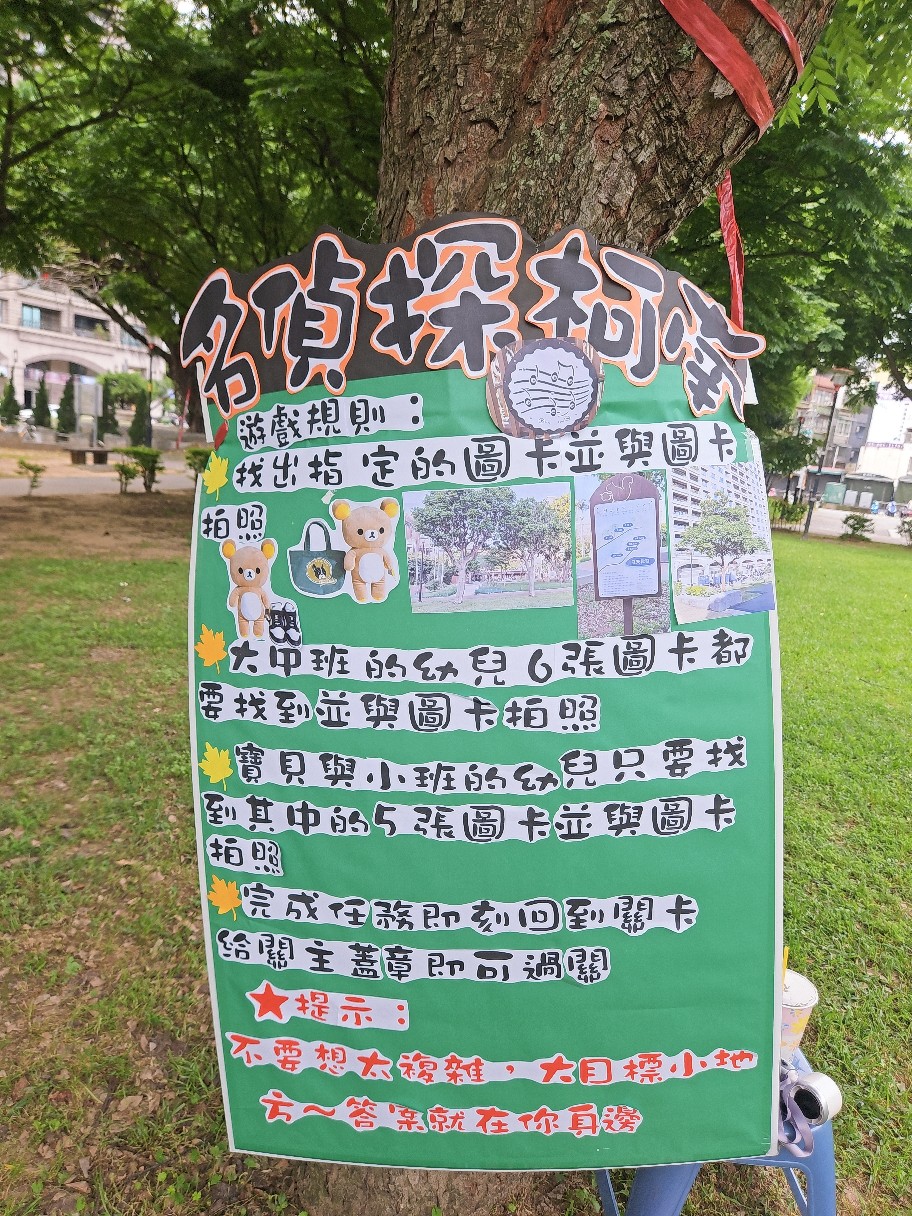 名偵探柯南
遊戲規則：
找出指定的圖卡並與圖卡
拍照
大中班的幼兒6張圖卡都
要找到並與圖卡拍照
寶貝與小班的幼兒只要找
到其中的5張圖卡並與圖卡
拍照
完成任務即刻回到關卡
給關主蓋章即可過關
★提示：
不要想太複雜，大目標小地
方～答案就在你身邊